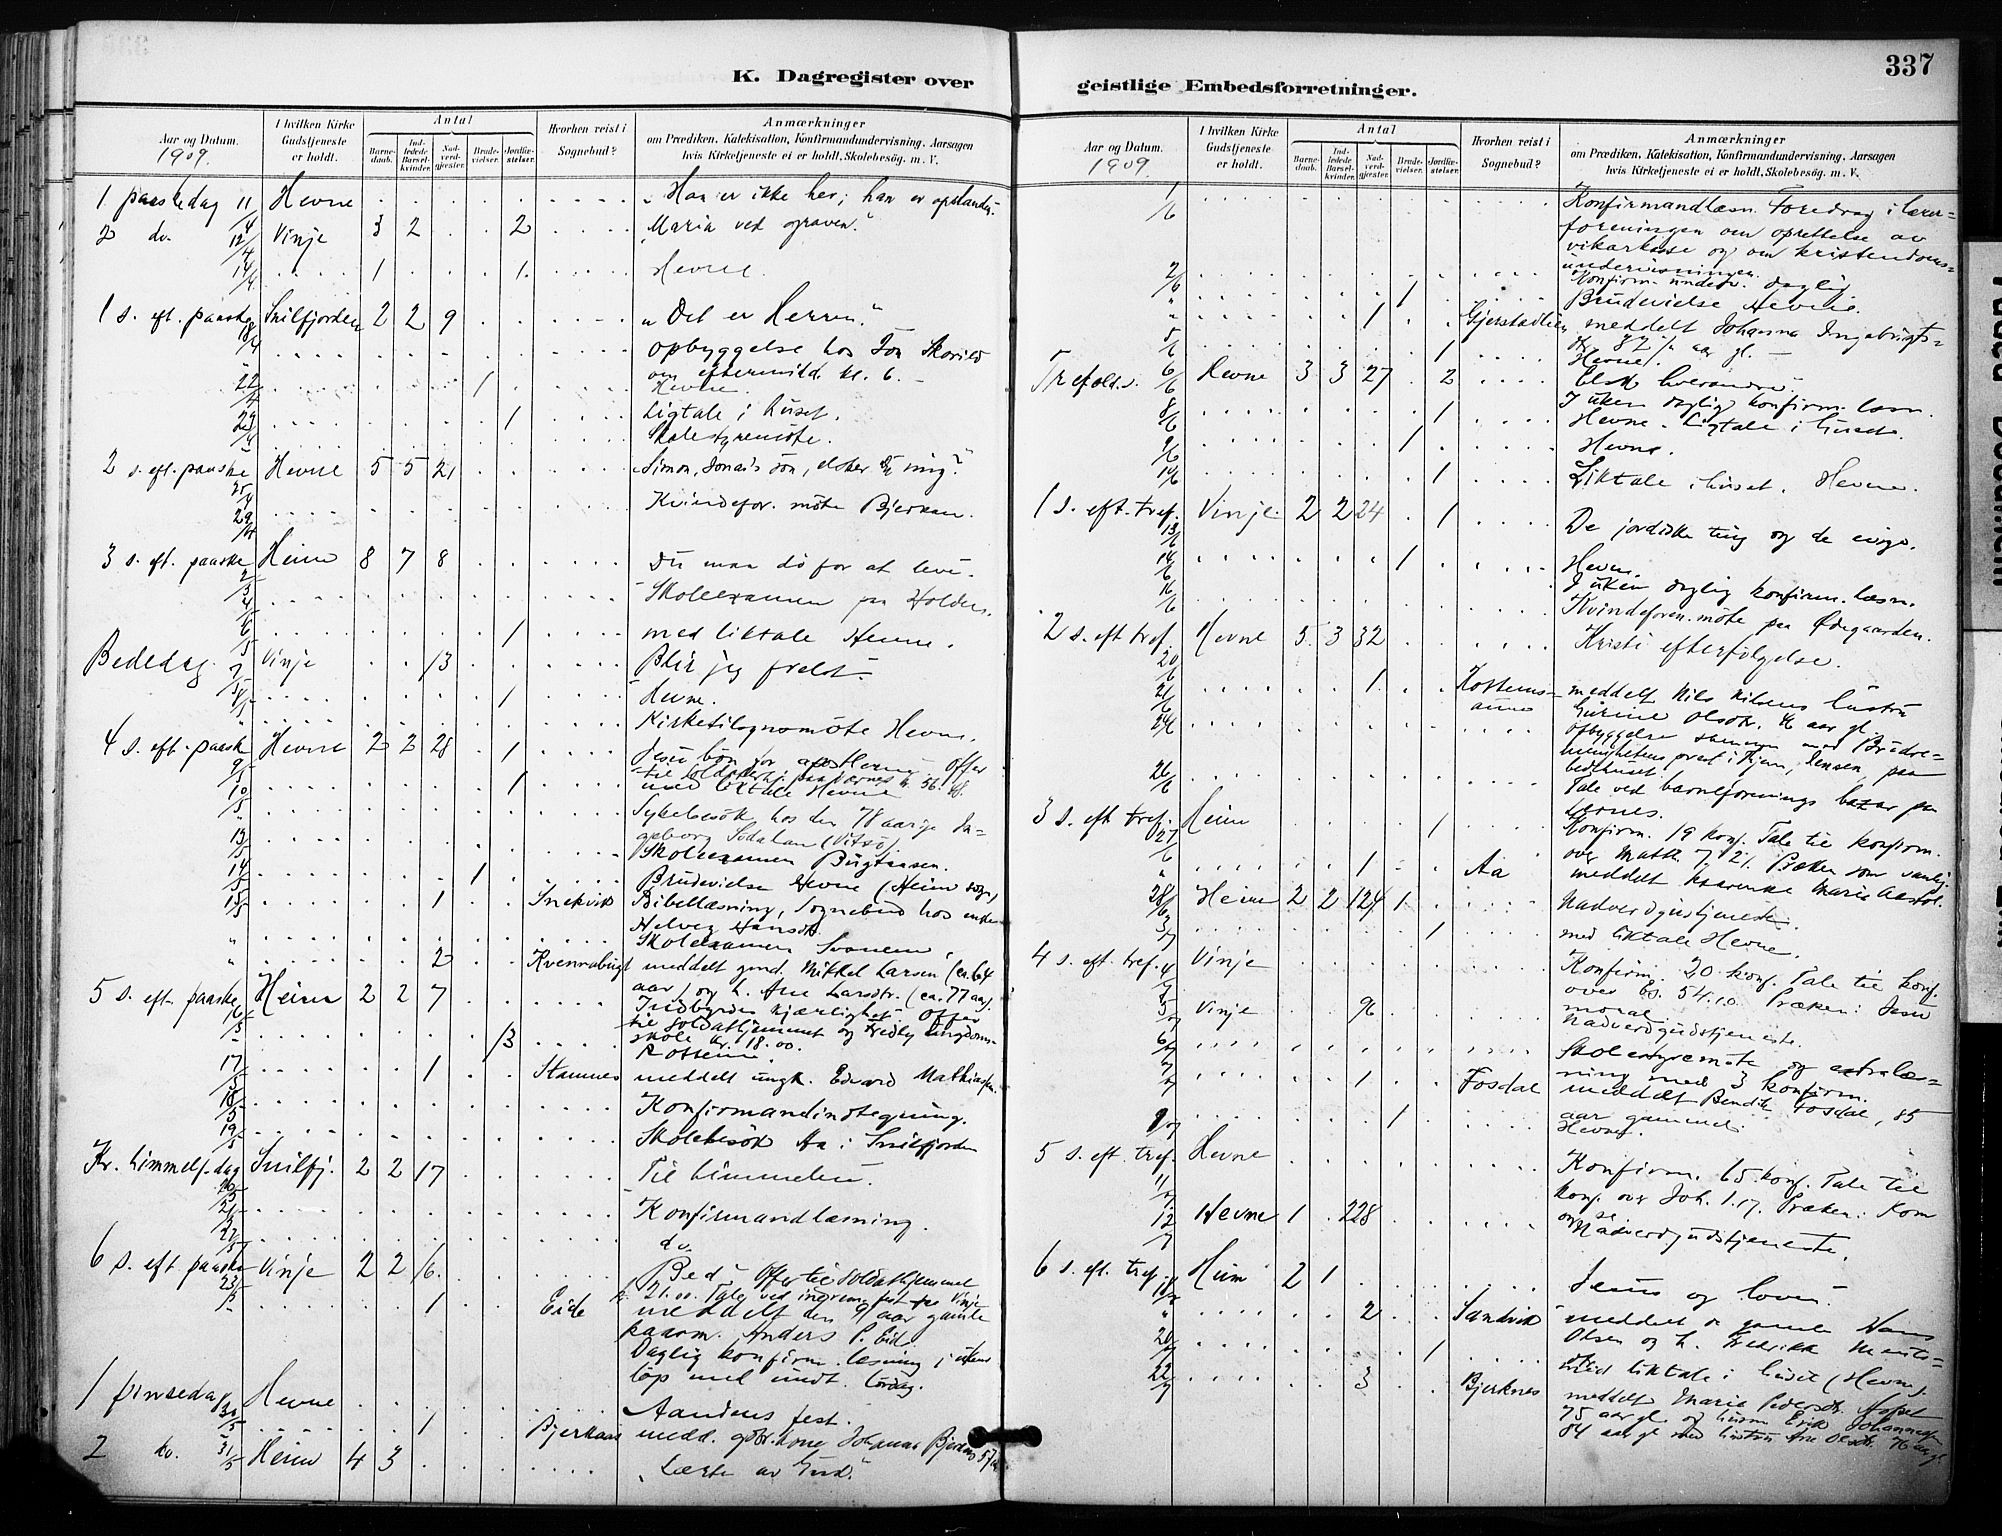 337
K. Dagregister over
Aar og Datum. 1909.
I hvilken Kirke Gudstjeneste er holdt.
Antal
Barnedaab.
Indledede Barselkvinder.
Nadverdgjester.
Brudevielser.
Jordfæstelser.
Hvorhen reist i Sognebud?
Anmærkninger
om Prædiken, Katekisation, Konfirmandundervisning, Aarsagen
hvis Kirketjeneste ei er holdt, Skolebesøg. m. V.
1 paaskedag 11/4 Hevne "Han er ikke her; han er opstanden."
2 do. 12/4 Vinje 3 2 2 "Maria ved graven."
14/4 1 1 Hevne.
1 s. eft. paaske 18/4 Snilfjorden 2 2 9 "Det er Herren."
opbyggelse hos Jon Skorild
om eftermidd. kl. 6.
22/4 1 Hevne.
23/4 1 Ligtale i huset.
Skolestyremöte.
2 s. eft. paaske 25/4 Hevne 5 5 21 "Simon, Jonas's sön, elsker du mig?"
29/4 Kvindefor. möte Bjerkan.
3 s. eft. paaske 2/5 Heim 8 7 8 Du maa dö for at leve.
4/5 Skoleexamen paa Holden.
6/5 1 med liktale Hevne.
Bededag 7/5 Vinje 13 Blir jeg frelst.
1 Hevne.
Kirketilsynsmöte Hevne.
4 s. eft. paaske 9/5 Hevne 2 2 28 1 Jesu bön for Offer
10/5 1 med liktale Hevne
Sykebesök hos den 78 aarige In-
geborg Södahan (Vitsö).
13/5 Skoleexamen
14/5 1 Brudevielse Hevne (Heim sogn)
15/5 1 Snekvik Bibellæsning, Sognebud hos enke
Helvig Hansdt.
" Skoleexamen Svanem.
" 2 Kvennabugt meddelt gmd. Mikkel Larsen (ca. 64
aar) og h. Ane Larsdtr. (ca. 77 aar).
5 s. eft. paaske 16/5 Heim 2 2 7 Indbyrdes kjærlighet. Offer
til soldathjemmet og Fredly ungdoms-
skole kr. 18.00.
13 Rottem.
17/5 1 Stamnes meddelt ungk. Edvard Mathiasen.
18/5 Konfirmandindtegning.
19/5 Skolebesök Aa i Snilfjorden
Kr. himmelf. dag 20/5 Snilfj. 2 2 17 Til himmelen.
21/5 Konfirmandlæsning.
22/5 do.
6 s. eft. paaske 23/5 Vinje 2 2 16 "Bed" Offer til Soldathjemmet
kr. 21.00. Tale ved ungdom. fest Vinje
1 Eide meddelt den 91 aar gamle
Anders P. Eid.
Daglig konfirm. læsning i ukens
löp med undt. lördag.
1 pinsedag 30/5 Hevne Aandens fest.
1 Bjerkan medd. gdbr. kone Johanna Bjerkan 57 a.
2 do. 31/5 Heim 4 3 "Lærte av Gud."
geistlige Embedsforretninger.
Aar og Datum. 1909.
I hvilken Kirke Gudstjeneste er holdt.
Antal
Barnedaab.
Indledede Barselkvinder.
Nadverdgjester.
Brudevielser.
Jordfæstelser.
Hvorhen reist i Sognebud?
Anmærkninger
om Prædiken, Katekisation, Konfirmandundervisning, Aarsagen
hvis Kirketjeneste ei er holdt, Skolebesøg. m. V.
1/6 Konfirmandlæsn. Foredrag i lærer-
foreningen om oprettelse av
vikarkasse og om kristendoms-
undervisningen.
2/6 Konfirm. underv. daglig
" 1 Brudevielse Hevne.
" 1 Gjerstadlien meddelt Johanna Ingebrigts-
dtr. 82 1/2 aar gl.
5/6 1 Hevne.
Trefold. s. 6/6 Hevne 3 3 27 2 Elsk hverandre.
I uken daglig konfirm. læsn.
8/6 1 Hevne. Ligtale i huset.
9/6 1 Hevne.
1 Liktale i huset. Hevne.
1 s. eft. tref. 13/6 Vinje 2 2 24 1 De jordiske ting og de evige.
14/6 1 Hevne.
I uken daglig konfirm. læsn.
16/6 Kvindeforen. möte paa Ödegaarden.
2 s. eft tref. 20/6 Hevne 5 3 32 Kristi efterfölgelse.
21/6 1 meddelt Nils Nilsens hustru
Gurine Olsdt. aar gl.
24/6 Opbyggelse sammen med Brödre-
menighetens præst i Kjøm, Jensen, paa
bedehuset.
26/6 Tale ved barneforenings bazar paa
3 s. eft. tref. 27/6 Heim 1 Konfirm. 19 konf. Tale til konfirm.
over Matth. 7, 21. Præken som vanlig.
" 1 Aa meddelt Marie
28/6 Heim 2 2 124 1 Nadverdgudstjeneste.
3/7 1 med liktale Hevne.
4 s. eft. tref. 4/7 Vinje Konfirm. 20 konf. Tale til konf.
over Es. 54.10. Præken: Jesu
moral.
5/7 Vinje 96 Nadverdgudstjeneste.
6/7 Skolestyremöte og extralæs-
ning med 3 konfirm.
7/7 1 Fosdal meddelt Bendik Fosdal, 85
aar gammel.
9/7 1 Hevne.
5 s. eft. tref. 11/7 Hevne Konfirm. 65 konf. Tale til
konf. over Joh. 1.17. Præken: Kom
og se.
12/7 Hevne 1 228 Nadverdgudstjeneste.
6 s. eft. tref. 18/7 Heim 2 1 Jesus og loven.
" 2 Sandvik meddelt gamle Hans
Olsen og h. Fredrikke
20/7 1 med liktale i huset (Hevne).
22/7 3 Bjerknes meddelt Marie Pedersdt.
75 aar gl. og husm. Erik Johannesen
84 aar gl. med hustru Ane Olsdt. 76 aar gl.